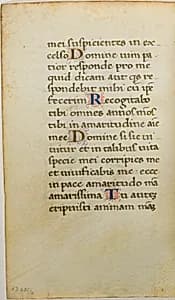 mei suspicientes in ex
celso Domine uim pa
tior responde pro me
quid dicam aut q̄s re
spondebit mihi cū ip̄e
fecerim Recogitabo
tibi omnes annos mos
tibi in amaritudine aīe
mee Domine si sic ui
uitur et in talibus uita
spūs mei corripies me
et uiuificabis me : ecce
in pace amaritudo mā
amarissima Tu autez
eripuisti animam māz